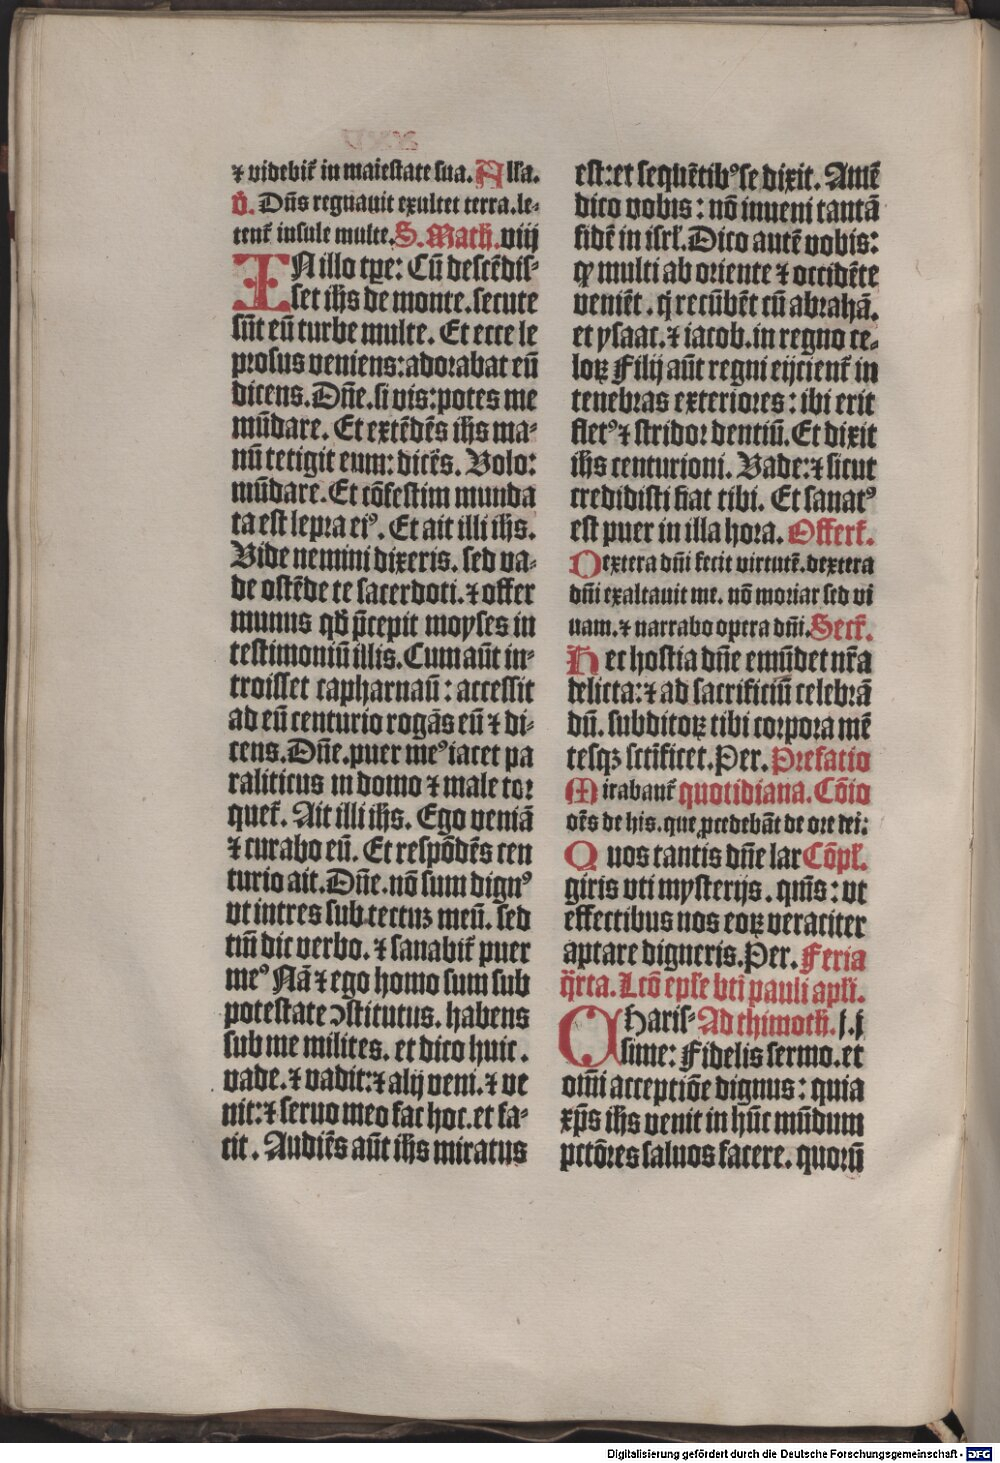 ⁊ videbit̃ in maiestate sua. Alľa.
V̓. Dn̄s regnauit exultet terra. le⸗
tent̃ insule multe. S. Math. viij
IN illo tp̄e: Cū descēdis⸗
set ih̄s de monte. secute
sūt eū turbe multe. Et ecce le
prosus veniens: adorabat eū
dicens. Dn̄e. si vis: potes me
mūdare. Et extēdēs ih̄s ma⸗
nū tetigit eum: dicēs. Volo:
mūdare. Et cōfestim munda
ta est lepra eiꝰ. Et ait illi ih̄s.
Vide nemini dixeris. sed va⸗
de ostēde te sacerdoti. ⁊ offer
munus qd̄ p̄cepit moyses in
testimoniū illis. Cum aūt in⸗
troisset capharnaū: accessit
ad eū centurio rogās eū ⁊ di⸗
cens. Dn̄e. puer meꝰ iacet pa
raliticus in domo ⁊ male tor
quet̃. Ait illi ih̄s. Ego veniā
⁊ curabo eū. Et respōdēs cen
turio ait. Dn̄e. nō sum dignꝰ
vt intres sub tectuꝫ meū. sed
tm̄ dic verbo. ⁊ sanabit̃ puer
meꝰ Nā ⁊ ego homo sum sub
potestate ↄstitutus. habens
sub me milites. et dico huic.
vade. ⁊ vadit: ⁊ alij veni. ⁊ ve
nit: ⁊ seruo meo fac hoc. et fa⸗
cit. Audiēs aūt ih̄s miratus
est: et sequētibꝰ se dixit. Amē
dico vobis: nō inueni tantā
fidē in isrľ. Dico autē vobis:
ꝙ multi ab oriente ⁊ occidēte
veniēt. ⁊ recūbēt cū abrahā.
et ysaac. ⁊ iacob. in regno ce⸗
loꝝ Filij aūt regni eijcient̃ in
tenebras exteriores: ibi erit
fletꝰ ⁊ stridor dentiū. Et dixit
ih̄s centurioni. Vade: ⁊ sicut
credidisti fiat tibi. Et sanatꝰ
est puer in illa hora. Offert̃.
Dextera dn̄i fecit virtutē. dextera
dn̄i exaltauit me. nō moriar sed vi
uam. ⁊ narrabo opera dn̄i. Secr̃.
Hec hostia dn̄e emūdet nr̄a
delicta: ⁊ ad sacrificiū celebrā
dū. subditoꝝ tibi corpora mē
tesqꝫ sctīficet. Per. Prefatio
Mirabant̃ quotidiana. Cōio
oēs de his. que ꝓcedebāt de ore dei:
Quos tantis dn̄e lar Cōpľ.
giris vti mysterijs. qm̄s: vt
effectibus nos eoꝝ veraciter
aptare digneris. Per. Feria
q̄rta. Lcō epľe bt̄i pauli apľi.
CHaris⸗ Ad thimoth. j. j
sime: Fidelis sermo. et
om̄i acceptiōe dignus: quia
xp̄s ih̄s venit in hūc mūdum
pctōres saluos facere. quorū
Digitalisierung gefördert durch die Deutsche Forschungsgemeinschaft - DFG